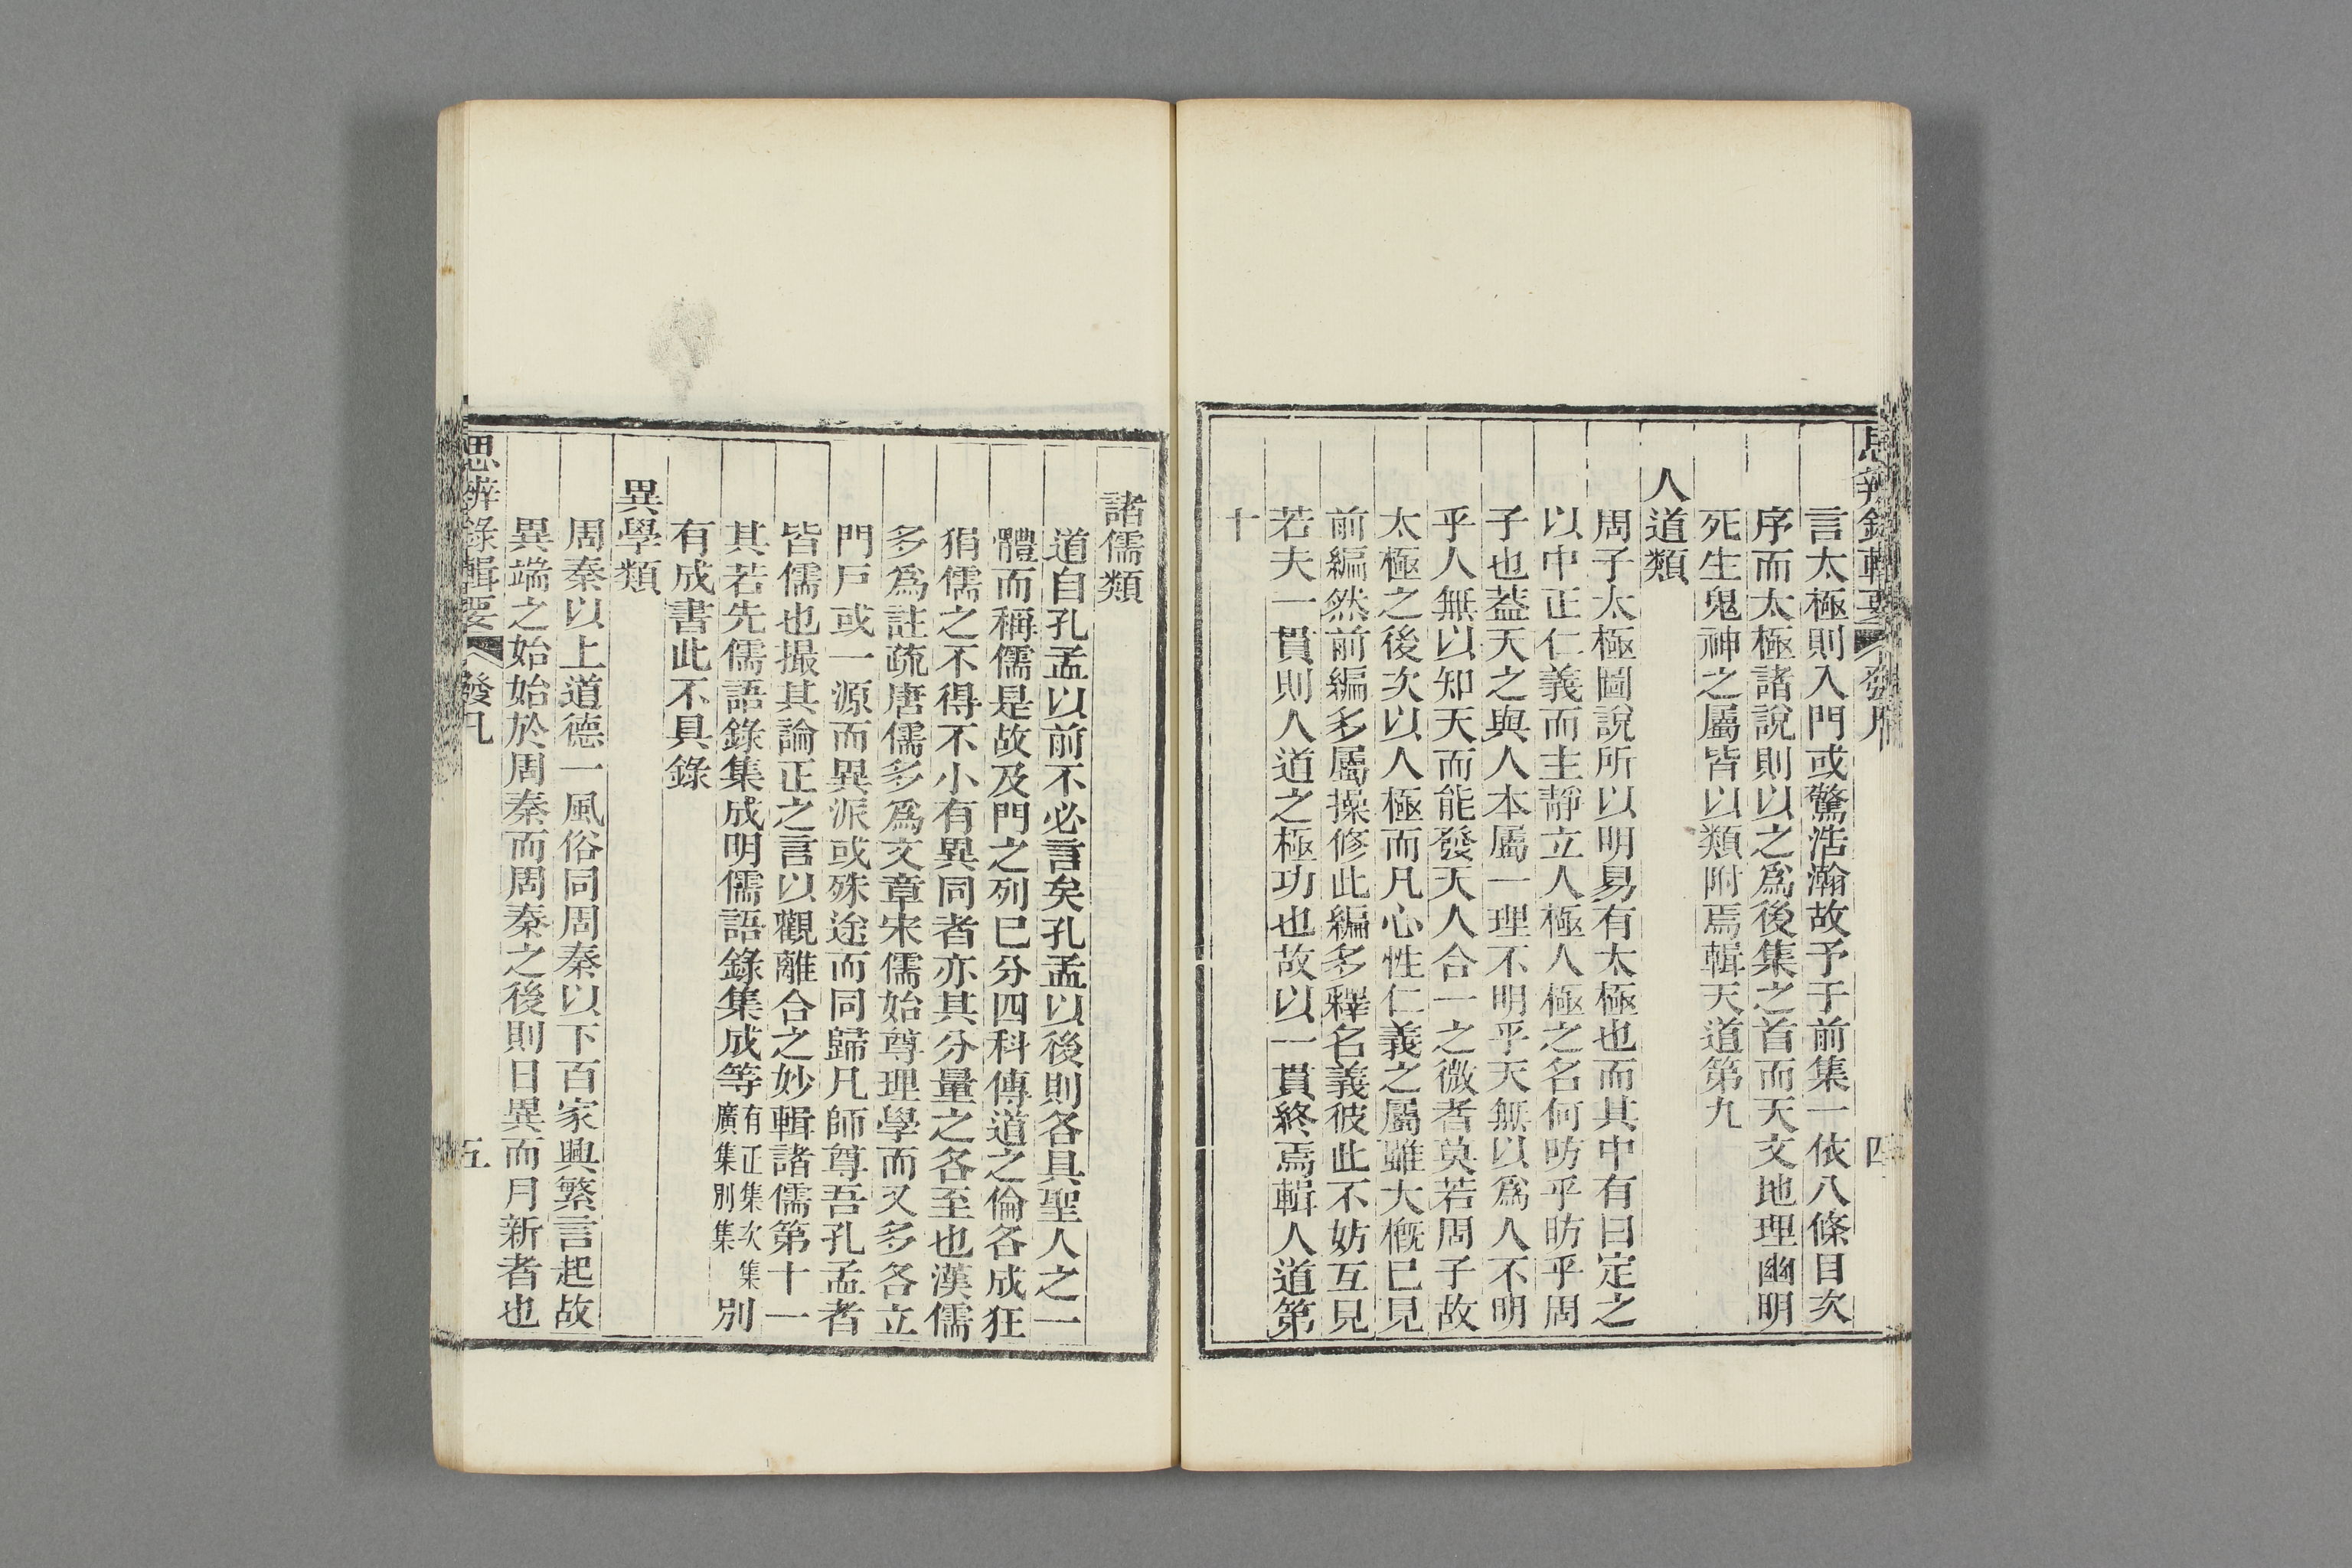 思辨錄輯要 發凡 四
言太極則入門或驚浩瀚故予于前集一依八條目次
序而太極諸說則以之爲後集之首而天文地理幽明
死生鬼神之屬皆以類附焉輯天道第九
人道類
周子太極圖說所以明易有太極也而其中有曰定之
以中正仁義而主靜立人極人極之名何昉乎昉乎周
子也蓋天之與人本屬一理不明乎天無以爲人不明
乎人無以知天而能發天人合一之微者莫若周子故
太極之後次以人極而凡心性仁義之屬雖大槪已見
前編然前編多屬操修此編多釋名義彼此不妨互見
若夫一貫則人道之極功也故以一貫終焉輯人道第
十
諸儒類
道自孔孟以前不必言矣孔孟以後則各具聖人之一
體而稱儒是故及門之列已分四科傳道之倫各成狂
狷儒之不得不小有異同者亦其分量之各至也漢儒
多爲註疏唐儒多爲文章宋儒始尊理學而又多各立
門戶或一源而異派或殊途而同歸凡師尊吾孔孟者
皆儒也撮其論正之言以觀離合之妙輯諸儒第十一
其若先儒語錄集成明儒語錄集成等有正集次集廣集別集別
有成書此不具錄
異學類
周秦以上道德一風俗同周秦以下百家興繁言起故
異端之始始於周秦而周秦之後則日異而月新者也
思辨錄輯要 發凡 五